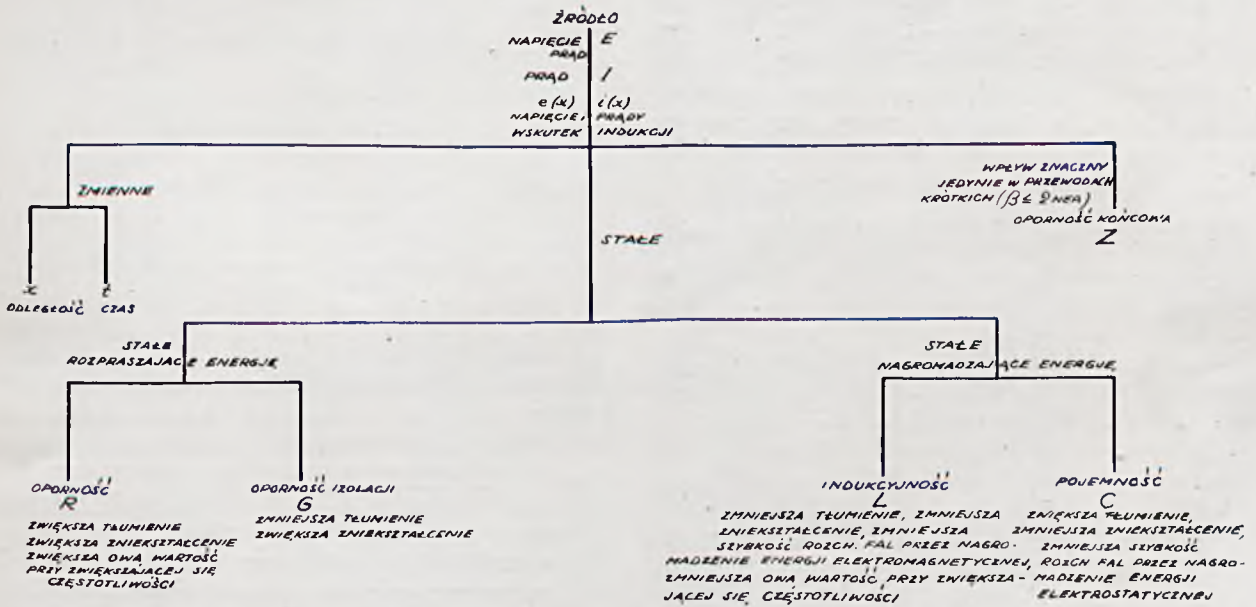 ŹRÓDŁO
NAPIĘCIE E
PRĄD
PRĄD I
e(x) i(x)
NAPIĘCIE, PRĄDY
WSKUTEK INDUKCJI
ZMIENNE
x t
ODLEGŁOŚĆ CZAS
STAŁE
WPŁYW ZNACZNY
JEDYNIE W PRZEWODACH
KRÓTKICH (β ≤ 2 NEP.)
OPORNOŚĆ KOŃCOWA
Z
STAŁE
ROZPRASZAJĄCE ENERGJĘ
OPORNOŚĆ
R
ZWIĘKSZA TŁUMIENIE
ZWIĘKSZA ZNIEKSZTAŁCENIE
ZWIĘKSZA OWA WARTOŚĆ
PRZY ZWIĘKSZAJĄCEJ SIĘ
CZĘSTOTLIWOŚCI
OPORNOŚĆ IZOLACJI
G
ZMNIEJSZA TŁUMIENIE
ZWIĘKSZA ZNIEKSZTAŁCENIE
STAŁE
NAGROMADZAJĄCE ENERGJĘ
INDUKCYJNOŚĆ
L
ZMNIEJSZA TŁUMIENIE, ZMNIEJSZA
ZNIEKSZTAŁCENIE, ZMNIEJSZA
SZYBKOŚĆ ROZCH. FAL PRZEZ NAGRO-
MADZENIE ENERGJI ELEKTROMAGNETYCZNEJ,
ZMNIEJSZA OWA WARTOŚĆ PRZY ZWIĘKSZA-
JĄCEJ SIĘ CZĘSTOTLIWOŚCI
POJEMNOŚĆ
C
ZWIĘKSZA TŁUMIENIE,
ZMNIEJSZA ZNIEKSZTAŁCENIE,
ZMNIEJSZA SZYBKOŚĆ
ROZCH FAL PRZEZ NAGRO-
MADZENIE ENERGJI
ELEKTROSTATYCZNEJ